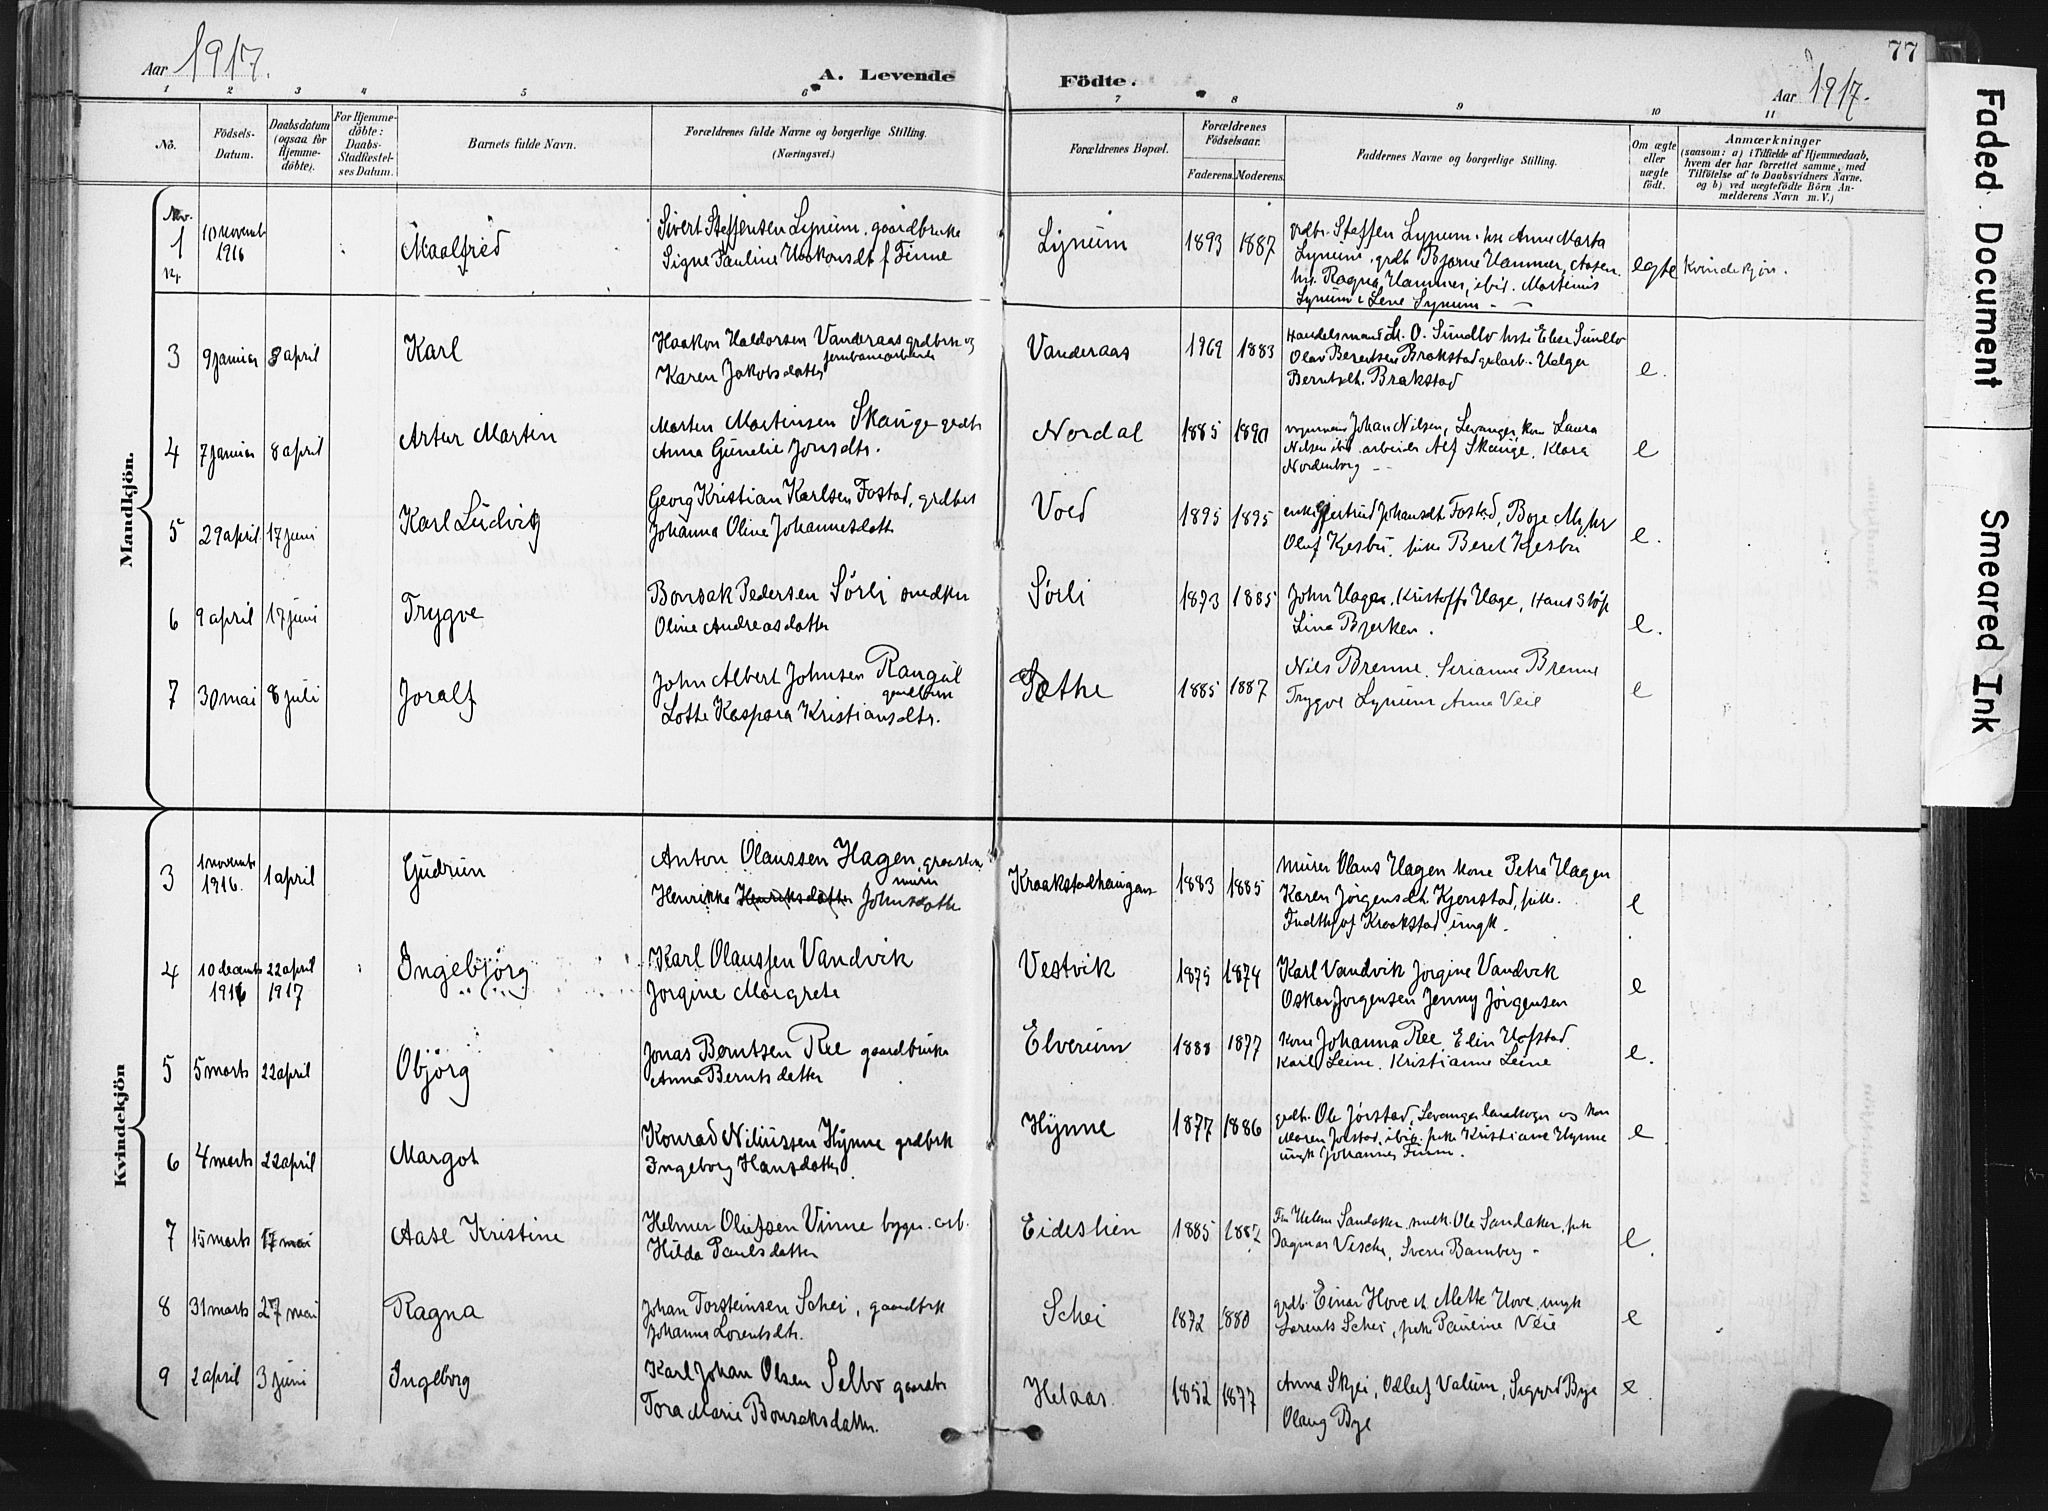 Aar 1917.
A. Levende
Födte.
Aar 1917.
77
1 2 3 4 5 6 7 8 9 10 11
No.
Födsels-Datum.
Daabsdatum (ogsaa for Hjemme-döbte).
For Hjemme-döbte: Daabs-Stadfæstel-ses Datum.
Barnets fulde Navn.
Forældrenes fulde Navne og borgerlige Stilling.
(Næringsvei.)
Forældrenes Bopæl.
Forældrenes Födselsaar.
Faderens. Moderens.
Faddernes Navne og borgerlige Stilling.
Om ægte eller uægte födt.
Anmærkninger
(saasom: a) i Tilfælde af Hjemmedaab,
hvem der har forrettet samme, med
Tilföielse af to Daabsvidners Navne.
og b) ved uægtefödte Börn An-
melderens Navn m. V.)
Mandkjön.
1 10 novemb 1916 Maalfred
Sivert Steffensen Lynum, gaardbruke
Signe Pauline Haakonsdt f Finne
Lynum 1893 1887
Steffen Lynum. hse Anne Marta
Lynum, grdb. Bjarne Hammer, Aasen.
Ragna Hammer, ibid. Martinus
Lynum Lene Lynum
egte Kvindekjön.
3 9 januar 8 april Karl
Haakon Haldorsen Vanderaas grdbrk og
jernbanearbeide
Karen Jakobsdatter
Vanderaas 1969 1883
Handelsmand O. Sundlo hste Else Sundlo
Olav Berentsen Brakstad Helga
Berntsdt. Brakstad
e.
4 7 januar 8 april Artur Martin
Morten Martinsen Skange grdb
Anna Gunelie Jonsdtr.
Nordal 1885 1890
Johan Nilsen, Levanger, kone Laura
Nilsen ibid. arbeider Alf Skange, Klara
Nordenborg
e
5 29 april 17 juni Karl Ludvig
Georg Kristian Karlsen Fostad, grdbr
Johanna Oline Johannesdatt
Voed 1895 1895
enke Gjertrud Johansdt Fostad, Boje Myhr
Oluf Kjesbu, pike Beret Kjesbu
e.
6 9 april 17 juni Trygve
Bonsak Pedersen Sörli snedker
Oline Andreasdatter
Sörli 1873 1885
John Hage, Kristoffer Hage, Hans
Lina Bjerken.
e.
7 30 mai 8 juli Joralf
John Albert Johnsen Rangul
Lotte Kaspara Kristiansdtr.
Sæthe 1885 1887
Nils Brenne. Serianna Brenne
Trygve Lynum Anna Veie
e
Kvindekjön
3 1 novemb 1916. 1 april Gudrun
Anton Olaussen Hagen graasten
murer
Henrikke Henriksdatter Johnsdatte
Kraakstadhaugan 1883 1885
murer Olaus Hagen kone Petra Hagen
Karen Jörgensdt. Kjenstad, pike.
Kraakstad ungk.
e
4 10 decemb 1916 22 april 1917 Ingebjörg
Karl Olaussen Vandvik
Jorgine Margrete
Vestvik 1875 1874
Karl Vandvik Jorgine Vandvik
Oskar Jorgensen Jenny Jörgensen
e
5 5 marts 22 april Objörg
Jonas Berntsen Ree gaardbruke
Anna Berntsdatter
Elverum 1888 1877
kone Johanna Ree, Elin Hofstad.
Karl Leine. Kristianne Leine
e.
6 4 marts 22 april Margot
Konrad Niliussen Hynne grdbrk
Ingeborg Hansdatter
Hynne 1877 1886
grdb. Ole Jörstad, Levanger landsogn og kone
Maren Jörstad, ibid. pike Kristiane Hynne
ungk Johannes
e
7 15 marts 17 mai Aase Kristine
Helmer Olufsen Vinne bygn. arb.
Hilda Paulsdatter
Eideslien 1885 1882
Helen Sandaker, snedk. Ole Sandaker, pike
Dagmar Vische, Sverre Bamberg
e.
8 31 marts 27 mai Ragna
Johan Torsteinsen Schei, gaardbrk
Johanna Lorentsdtr.
Schei 1872 1880
grdb. Einar Hove og Mette Hove, ungk
Lorents Schei, pike Pauline Veie
e
9 2 april 3 juni Ingeborg
Karl Johan Olsen Selbo gaardb
Tora Marie Bonsaksdatter.
Helaas 1852 1877
Anna Skjei, Odleif Valum, Sigurd Bye
Olaug Bye
e.
Faded Document
Smeared Ink